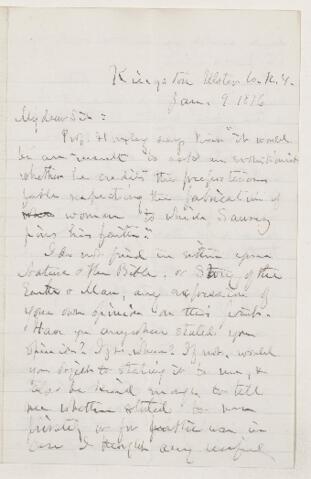 Kingston Ulster Co. N.Y.
Jan. 9 1876
My dear Sir:
Prof. Huxley says " it would
be an "insult" to ask an evolutionist
whether he credits the preposterous
fable respecting the fabrication of
woman to which
pins his faith."
I do not find in either your
Nature & the Bible, or Story of the
Earth & Man, any expression of
your own opinion on this
Have you anywhere stated your
opinion? If so where? If not, would
you object to stating it to me, &
be kind enough to tell
me whether stated to me
privately or for public use in
case I thought any useful